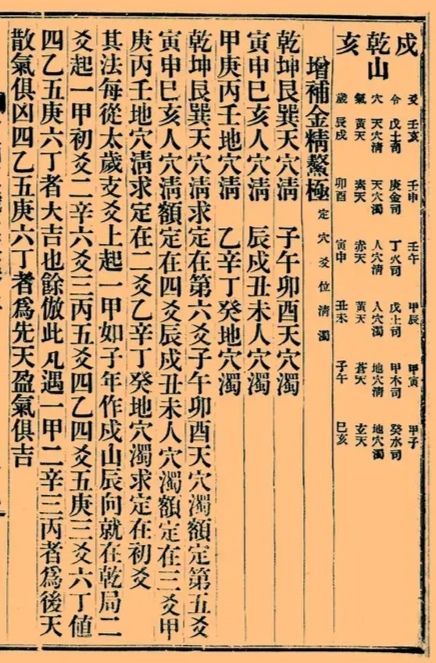 戌
乾山
亥
爻 壬亥 壬申 壬午 甲辰 甲寅 甲子
令 戊土司 庚金司 丁火司 戊土司 甲木司 癸水司
穴 天穴清 天穴濁 人穴清 人穴濁 地穴清 地穴濁
氣 黃天 素天 赤天 黃天 蒼天 玄天
歲 辰戌 卯酉 寅申 丑未 子午 巳亥
增補金精鰲極 定穴爻位清濁
乾坤艮巽天穴清 子午卯酉天穴濁
寅申巳亥人穴清 辰戌丑未人穴濁
甲庚丙壬地穴清 乙辛丁癸地穴濁
乾坤艮巽天穴清求定在第六爻子午卯酉天穴濁額定第五爻
寅申巳亥人穴清額定在四爻辰戌丑未人穴濁額定在三爻甲
庚丙壬地穴清求定在二爻乙辛丁癸地穴濁求定在初爻
其法每從太歲支爻上起一甲如子年作戍山辰向就在乾局二
爻起一甲初爻二辛六爻三丙五爻四乙四爻五庚三爻六丁値
四乙五庚六丁者大吉也餘倣此凡遇一甲二辛三丙者爲後天
散氣俱凶四乙五庚六丁者爲先天盈氣俱吉